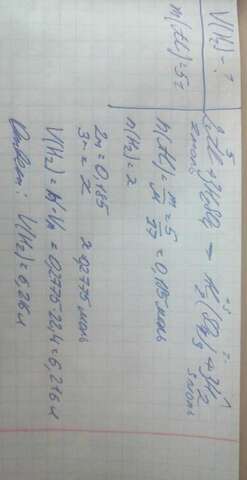 V(H₂) - ?
m(Al) = 5г
2Al + 3H₂SO₄ → Al₂(SO₄)₃ + 3H₂
n(Al) = m/M = 5/27 = 0,185 моль
n(H₂) = x
2n = 0,185
3n = x
x = 0,2775 моль
V(H₂) = n·Vm = 0,2775·22,4 = 6,216 л
Ответ: V(H₂) = 6,216 л